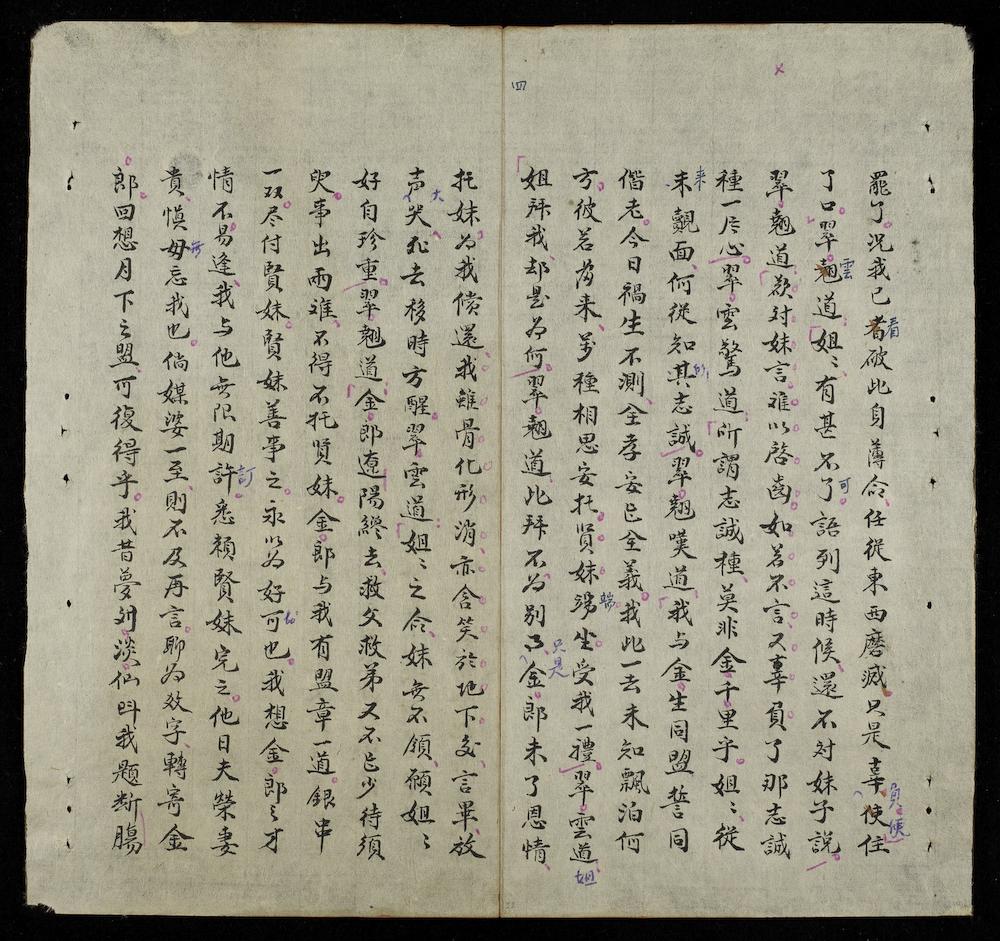 四
罷了况我已者看破此自薄命任從東西磨滅只是辜使負使住
了口翠翹雲道姐〻有甚不了可語到這時候還不対妹子説
翠翹道欲対妹言难以啓齒如若不言又辜負了那志誠
種一片心翠雲驚道所謂志誠種莫非金千里乎姐〻從
未来覿面何從知其的志誠翠翹嘆道我与金生同盟誓同
偕老今日禍生不測全孝安能全義我此一去未知飄泊何
方彼若为来万種相思安托賢妹端坐受我一禮翠雲道姐
姐拜我却是为何翠翹道此拜不为別只是金郎未了恩情
托妹为我償還我雖骨化形消亦含笑於地下矣言畢放
声大哭死去移時方醒翠雲道姐〻之命妹無不領願姐〻
好自珍重翠翹道金郎遼陽終去救父救弟又不能少待須
臾事出両难不得不托賢妹金郎与我有盟章一道銀串
一双尽付賢妹賢妹善事之永以为好可也我想金郎之才
情不易逢我与他無限期許訂悉頼賢妹完之他日夫榮妻
貴慎毋忘我也倘媒婆一至則不及再言聊为数字轉寄金
郎回想月下之盟可復得乎我昔夢刘淡仙叫我題断膓